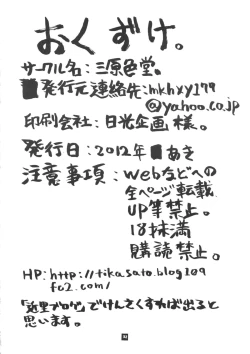 おくずけ。
サークル名：三原色堂。
発行元連絡先：mkhxy179
@yahoo.co.jp
印刷会社：日光企画 様。
発行日：2012年 あき
注意事項：Webなどへの
全ページ転載
UP等禁止。
18才未満
購読禁止。
HP：http://tikasato.blog109
fc2.com/
「近里ブログ」でけんさくすれば出ると
思います。